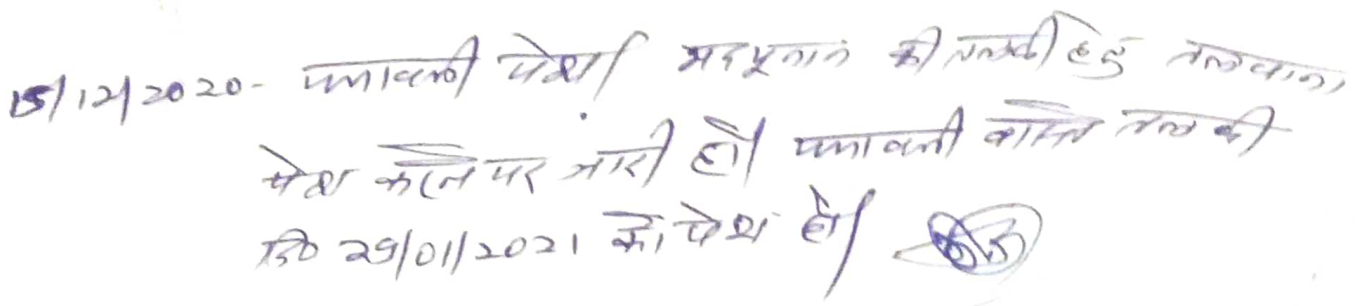 15/12/2020- पत्रावली पेश। मदयूनान की तलबी हेतु तलवाना,
पेश करने पर जारी हो। पत्रावली वास्ते तलबी
दि० 29/01/2021 को पेश हो।